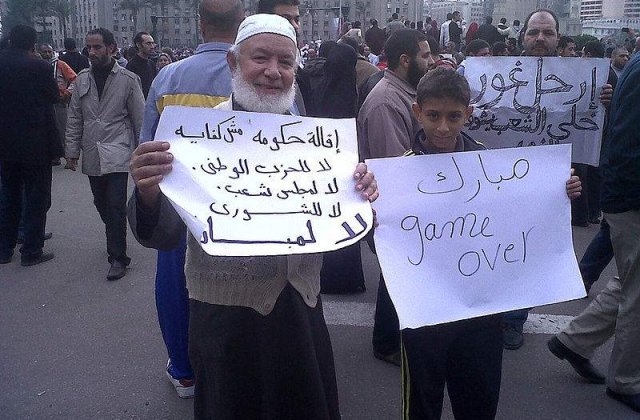 إقالة حكومه مش كفايه
لا للحزب الوطني.
لا لمجلس شعب.
لا للشورى
لا لمبارك
مبارك
game
over
إرحل غور
خلي الشعب يشوف